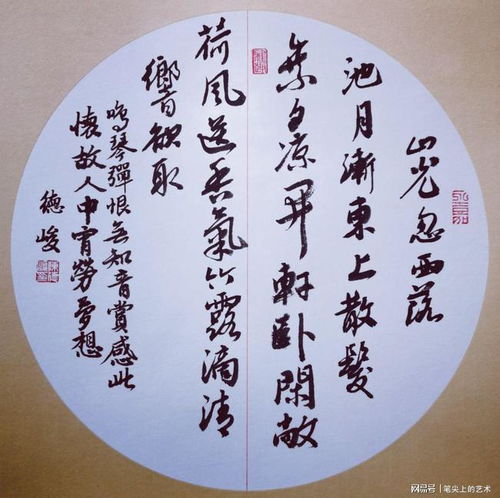 山光忽西落
池月漸東上散髮
乘夕凉開軒卧閑敞
荷風送香氣竹露滴清
響欲取
鳴琴彈恨无知音賞感此
懷故人中宵勞夢想
德峻
网易号 | 笔尖上的艺术